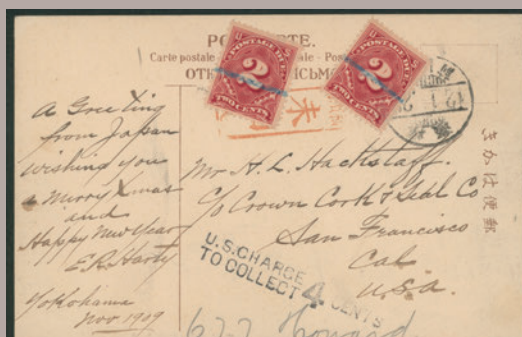 PO
TE.
Carte postale
ale - Pos
ОТК
ИСЬМ
POSTAGE DUE
2
TWO CENTS
POSTAGE DUE
2
TWO CENTS
未
きかは便郵
A Greeting
from Japan
wishing you
a Merry Xmas
and
Happy New Year
E.R. Harty
Yokohama
Nov 1909
Mr H. L. Hachstaff.
c/o Crown Cork & Seal Co
San Francisco
Cal
U.S.A.
U.S.CHARGE
TO COLLECT 4 CENTS
627 Howard